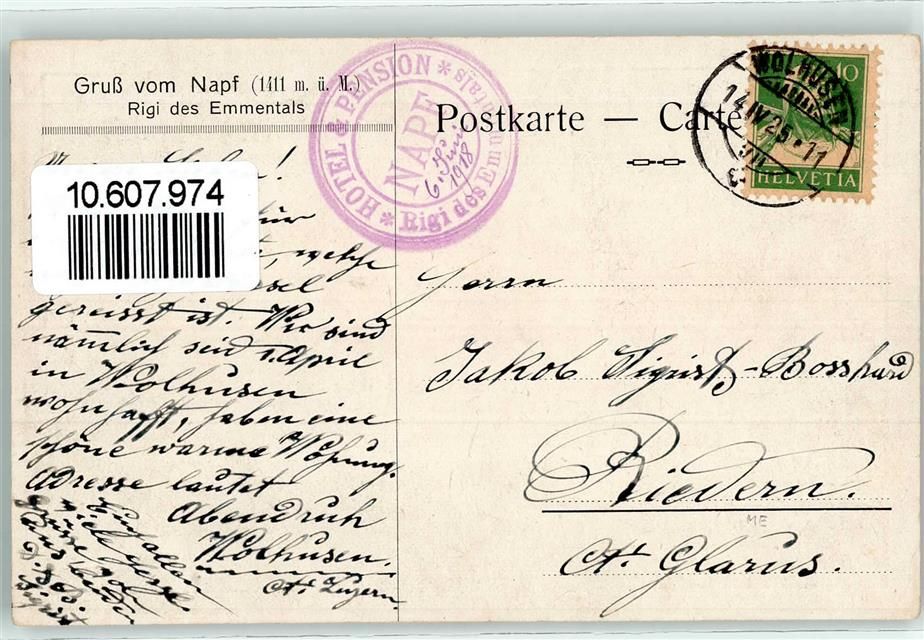 Gruß vom Napf (1411 m. ü. M.)
Rigi des Emmentals
HOTEL & PENSION
NAPF
Rigi des Emmentals
6. Juni
1918
Postkarte — Carte
WOLHUSEN
14.IV.25.11
10
HELVETIA
10.607.974
für
welche
gereisst ist. Wir sind
nämmlich seid 1. April
in Wolhusen
wohnhafft, haben eine
schöne warme Wohnung.
Adresse lautet
Abendruh
Wolhusen.
Kt. Luzern.
Herrn
Jakob Sigrist-Bosshard
Riedern.
ME
Kt. Glarus.